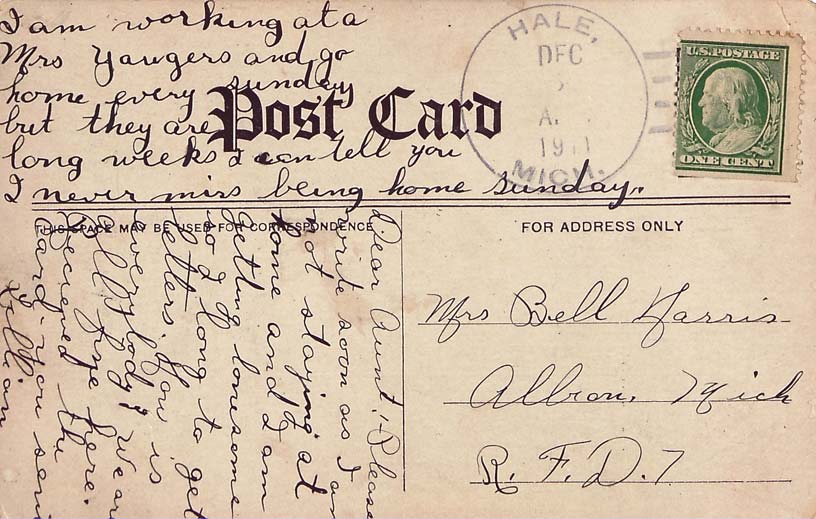 I am working at a
Mrs Yaugers and go
home every sunday
but they are
long weeks I can tell you
I never miss being home sunday.
Post Card
HALE,
DEC
A.
1911
MICH.
U.S. POSTAGE
ONE CENT
THIS SPACE MAY BE USED FOR CORRESPONDENCE
FOR ADDRESS ONLY
Dear Aunt:- Please
write soon as I am
not staying at
home and I am
getting lonesome
so I long to get
letters. How is
everybody? We are
all fine here.
Recieved the
card you sent
Lillian
Mrs Bell Harris
Albion, Mich
R. F. D. 7